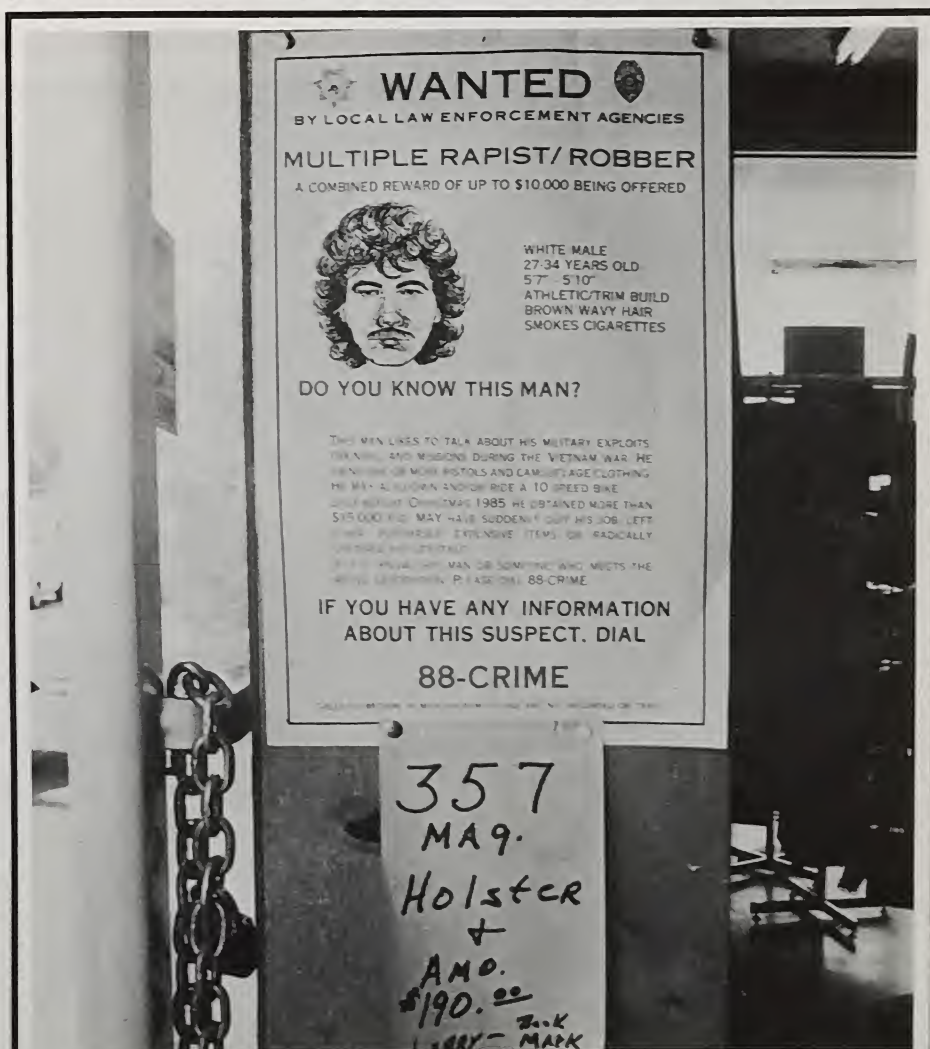 WANTED
BY LOCAL LAW ENFORCEMENT AGENCIES
MULTIPLE RAPIST/ROBBER
A COMBINED REWARD OF UP TO $10,000 BEING OFFERED
WHITE MALE
27-34 YEARS OLD
5'7" - 5'10"
ATHLETIC/TRIM BUILD
BROWN WAVY HAIR
SMOKES CIGARETTES
DO YOU KNOW THIS MAN?
THIS MAN LIKES TO TALK ABOUT HIS MILITARY EXPLOITS
AND MISSIONS DURING THE VIETNAM WAR. HE
OR MORE PISTOLS AND CAMOUFLAGE CLOTHING
HE MAY ALSO OWN AND/OR RIDE A 10 SPEED BIKE
CHRISTMAS 1985 HE OBTAINED MORE THAN
MAY HAVE SUDDENLY QUIT HIS JOB, LEFT
PURCHASED EXPENSIVE ITEMS OR RADICALLY
MAN OR SOMEONE WHO MEETS THE
PLEASE DIAL 88-CRIME
IF YOU HAVE ANY INFORMATION
ABOUT THIS SUSPECT. DIAL
88-CRIME
357
MAG.
HolsteR
+
AMO.
$190.00
LARRY -
MARK